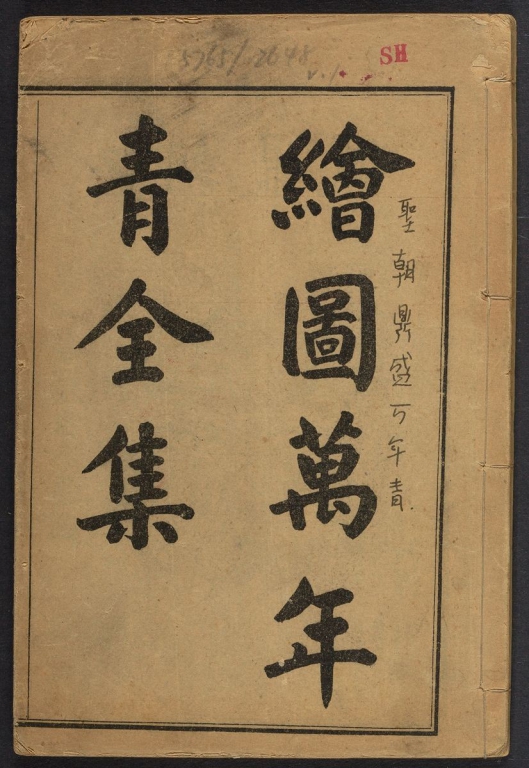 5765/2648
v.1
SH
聖朝鼎盛万年青
繪圖萬年
青全集